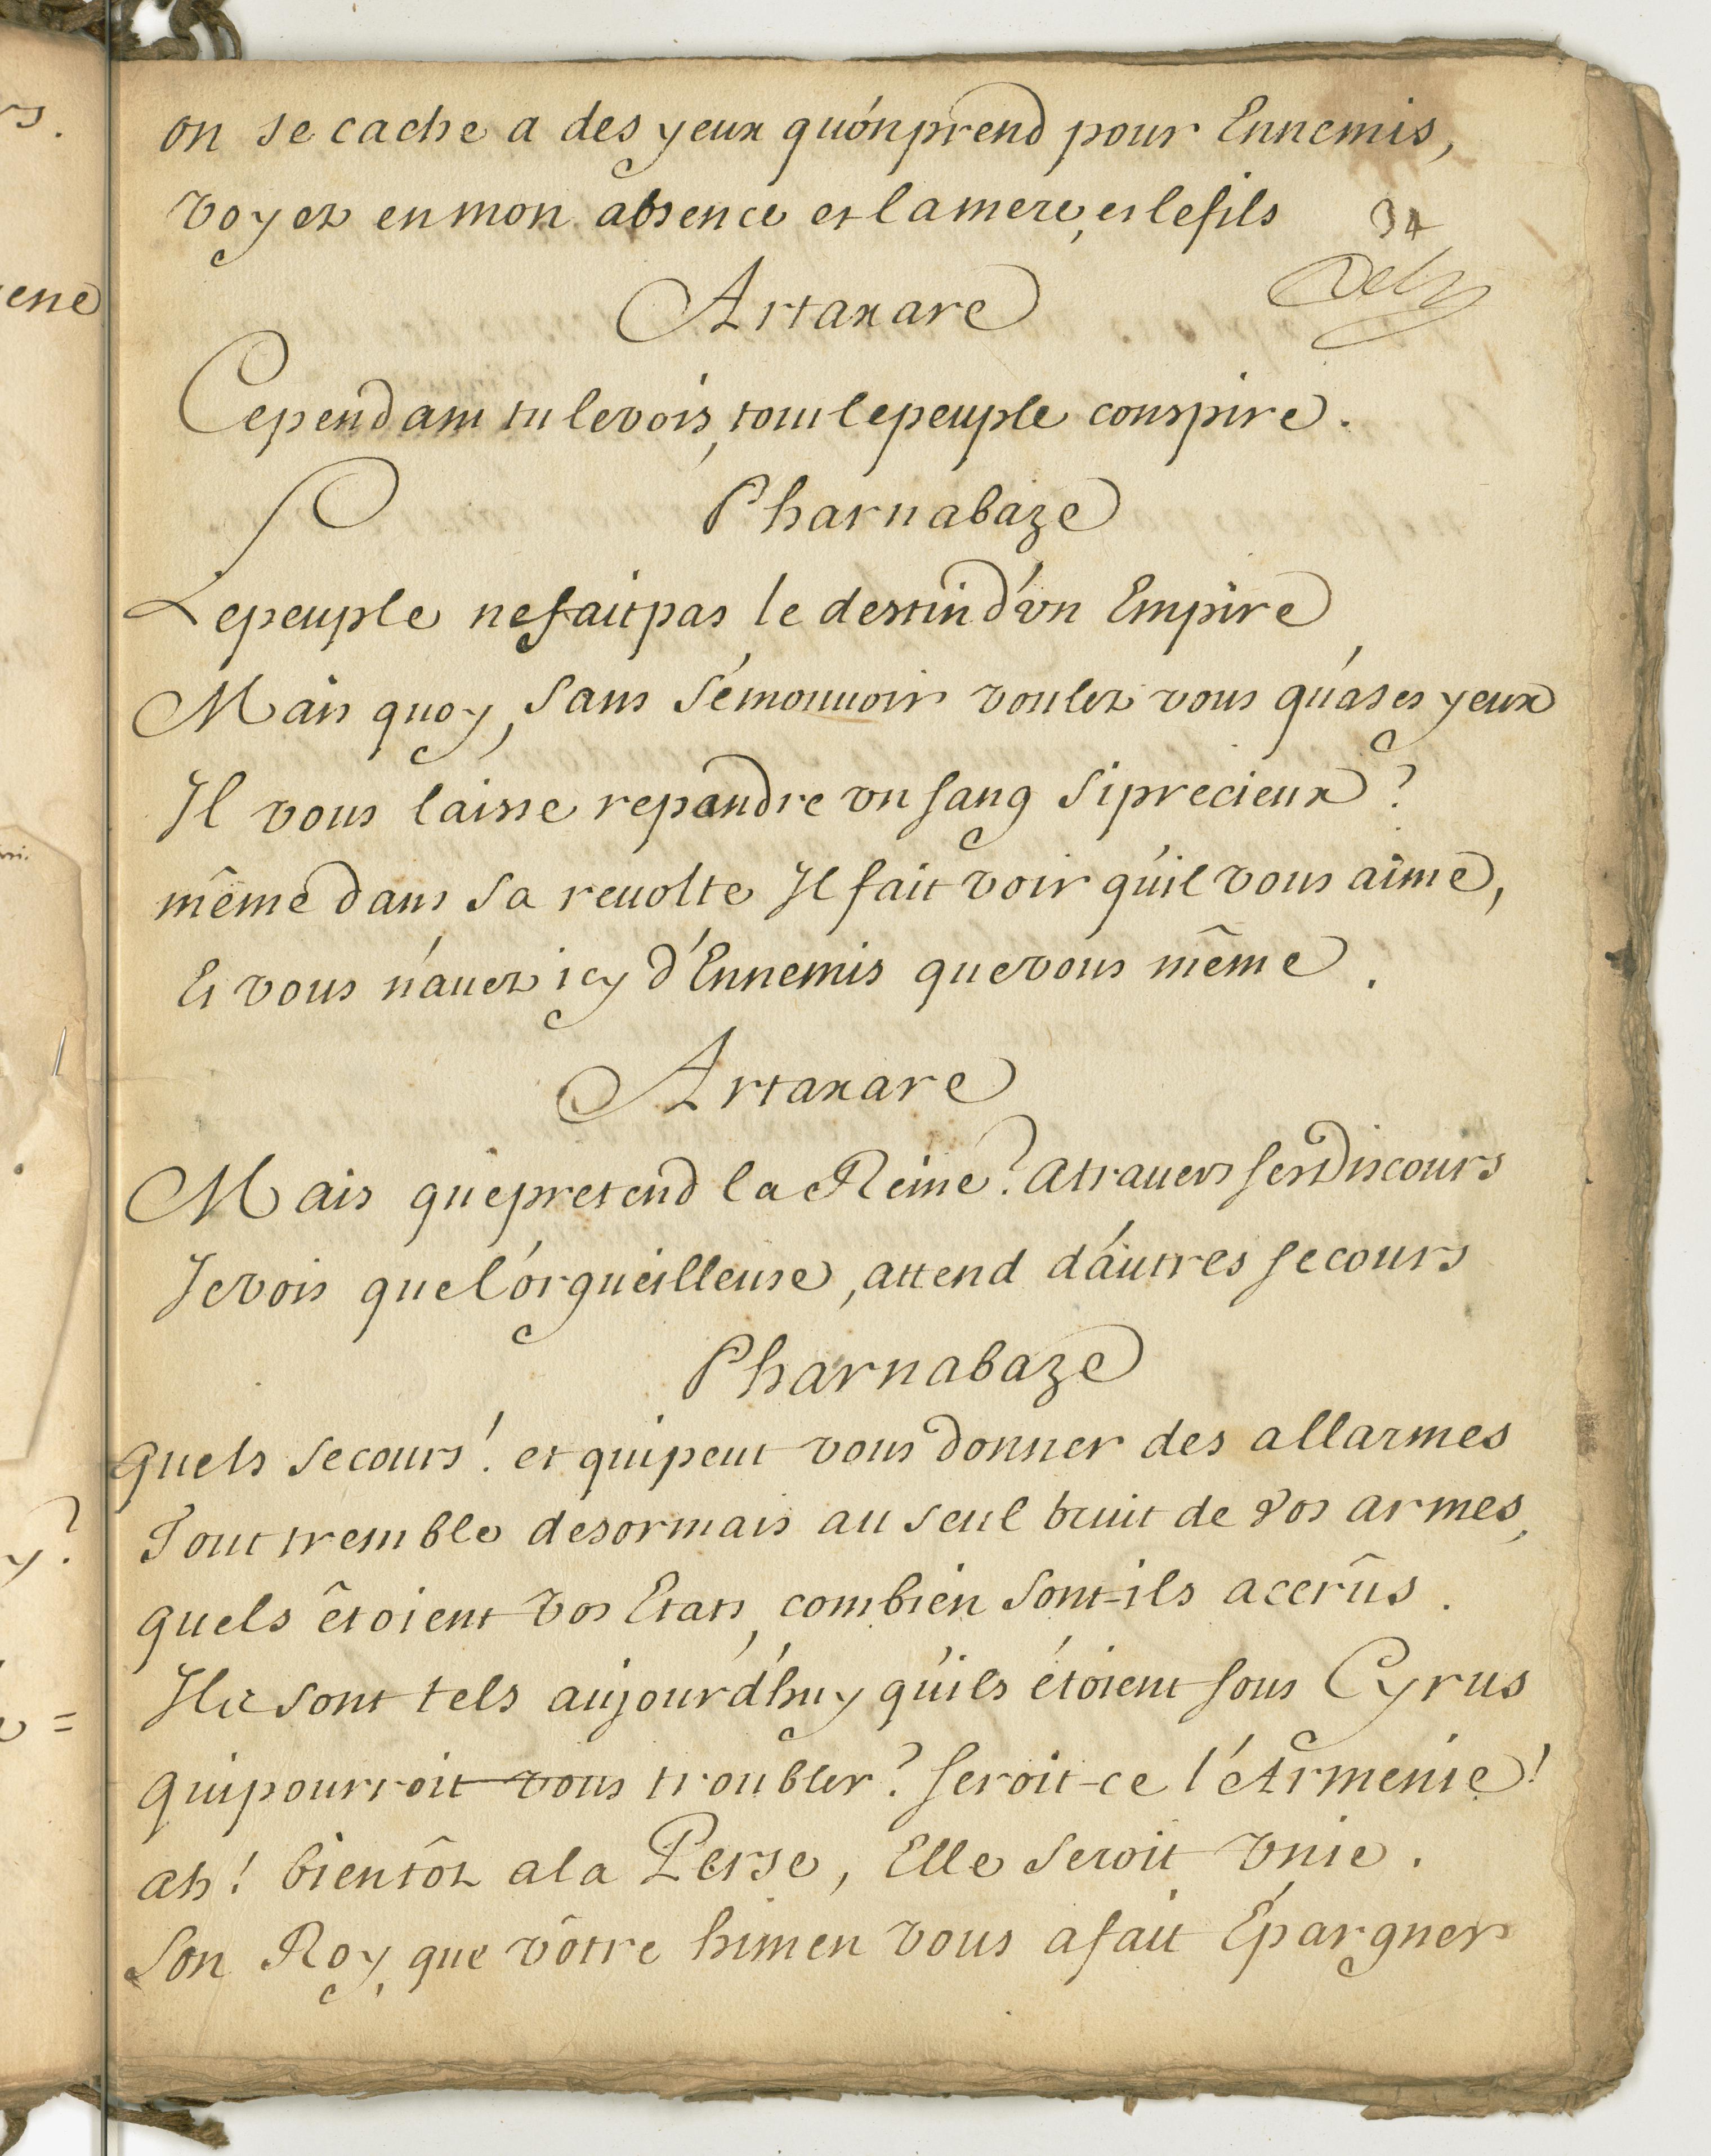 on se cache a des yeux qu'on prend pour Ennemis,
voyez en mon absence et la mere, et le fils
34
Artaxare
Cependant tu le vois, tout le peuple conspire.
Pharnabaze
Le peuple ne fait pas le destin d'vn Empire
Mais quoy, sans s'émouuoir voulez vous qu'a ses yeux
Il vous laisse repandre vn sang si precieux?
même dans sa reuolte Il fait voir qu'il vous aime,
Et vous n'auez icy d'Ennemis que vous même.
Artaxare
Mais que pretend la Reine? a trauers ses Discours
Je vois que l'orgueilleuse, attend d'autres secours
Pharnabaze
quels secours! et qui peut vous donner des allarmes
Tout tremble desormais au seul bruit de vos armes,
quels êtoient vos Etats, combien sont-ils accrûs.
Ils sont tels aujourd'huy qu'ils étoient sous Cyrus
qui pourroit vous troubler? seroit-ce l'Armenie!
ah! bientôt a la Perse, Elle seroit vnie.
Son Roy, que vôtre himen vous a fait Épargner